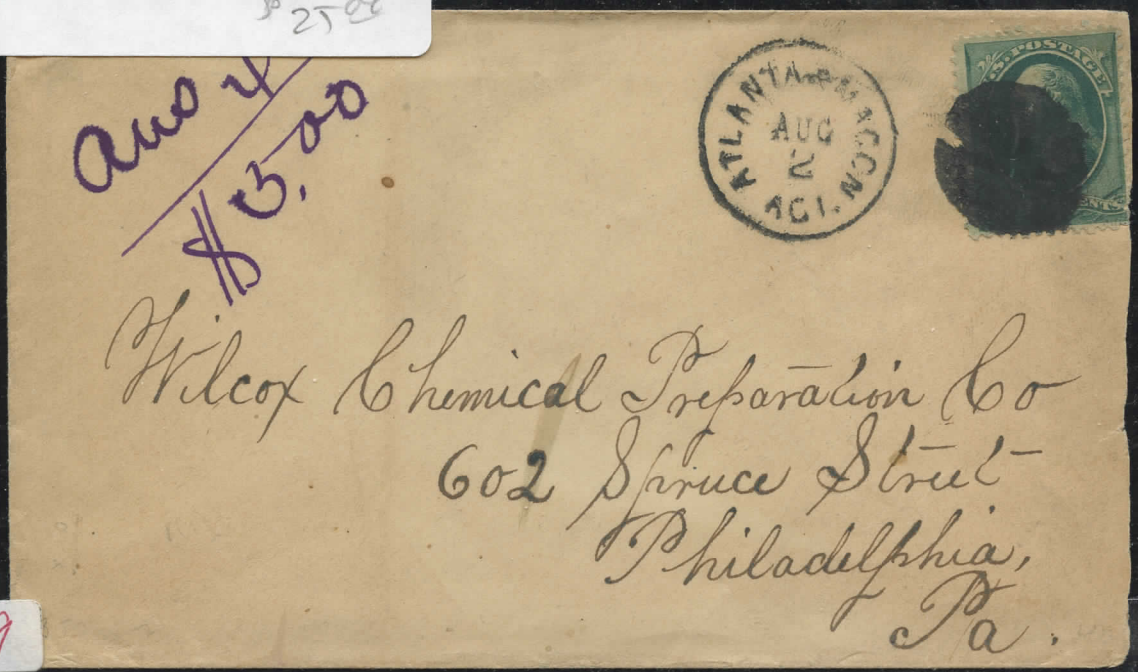 25 00
Aug 4
$5.00
ATLANTA & MACON
AUG
2
AGT.
U.S. POSTAGE
Wilcox Chemical Preparation Co
602 Spruce Street
Philadelphia,
Pa.
9